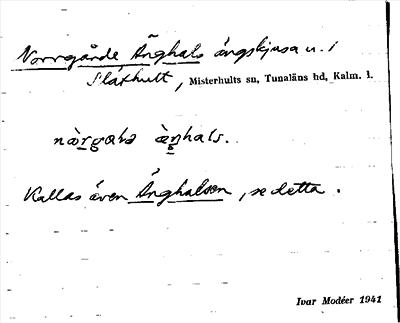 Norrgårde Änghals ängskjusa u. i
Släthult, Misterhults sn, Tunaläns hd, Kalm. l.
nàrgɑhə æ̀ŋhals.
Kallas även Änghalsen, se detta.
Ivar Modéer 1941